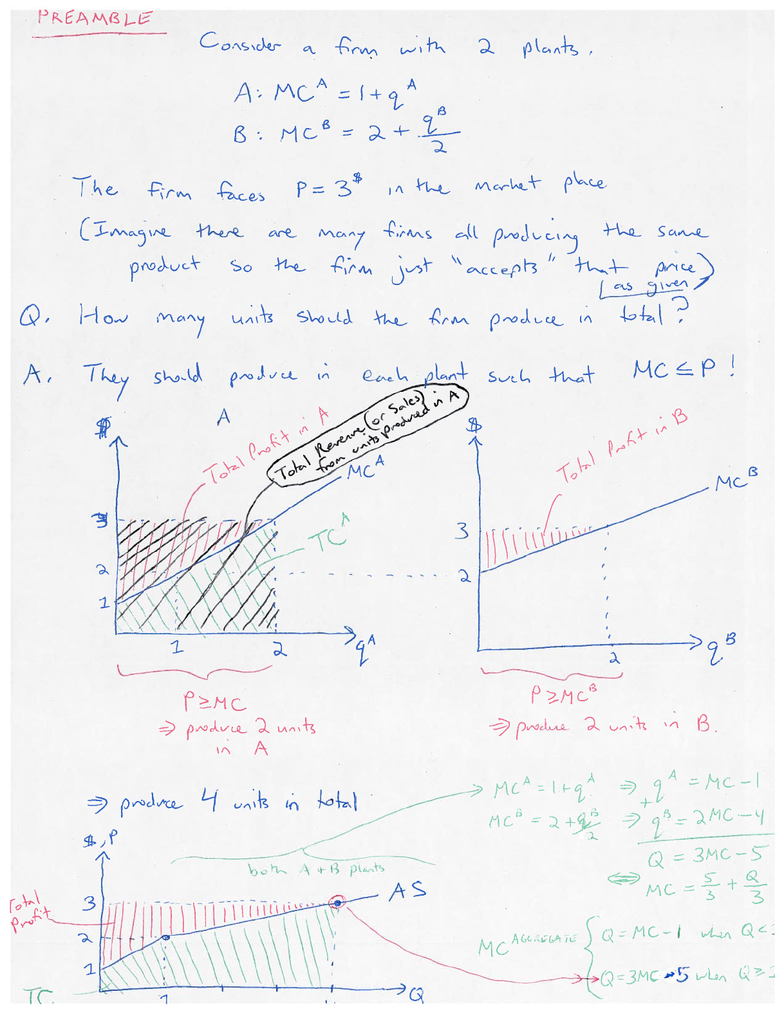 PREAMBLE
Consider a firm with 2 plants.
A: MC^A = 1 + q^A
B: MC^B = 2 + q^B/2
The firm faces P = 3$ in the market place
(Imagine there are many firms all producing the same
product so the firm just "accepts" that price)
(as given)
Q. How many units should the firm produce in total?
A. They should produce in each plant such that MC ≤ P!
A
$
Total Profit in A
Total Revenue (or Sales)
from units produced in A
MC^A
3
2
1
TC^A
1
2
q^A
P ≥ MC
⇒ produce 2 units
in A
$
Total Profit in B
MC^B
3
2
2
q^B
P ≥ MC^B
⇒ produce 2 units in B.
⇒ produce 4 units in total
MC^A = 1 + q^A ⇒ q^A = MC - 1
+
MC^B = 2 + q^B/2 ⇒ q^B = 2MC - 4
Q = 3MC - 5
⇔ MC = 5/3 + Q/3
$, P
both A + B plants
3
2
1
AS
Total
Profit
TC
1
Q
MC^AGGREGATE { Q = MC - 1 when Q <
Q = 3MC - 5 when Q ≥